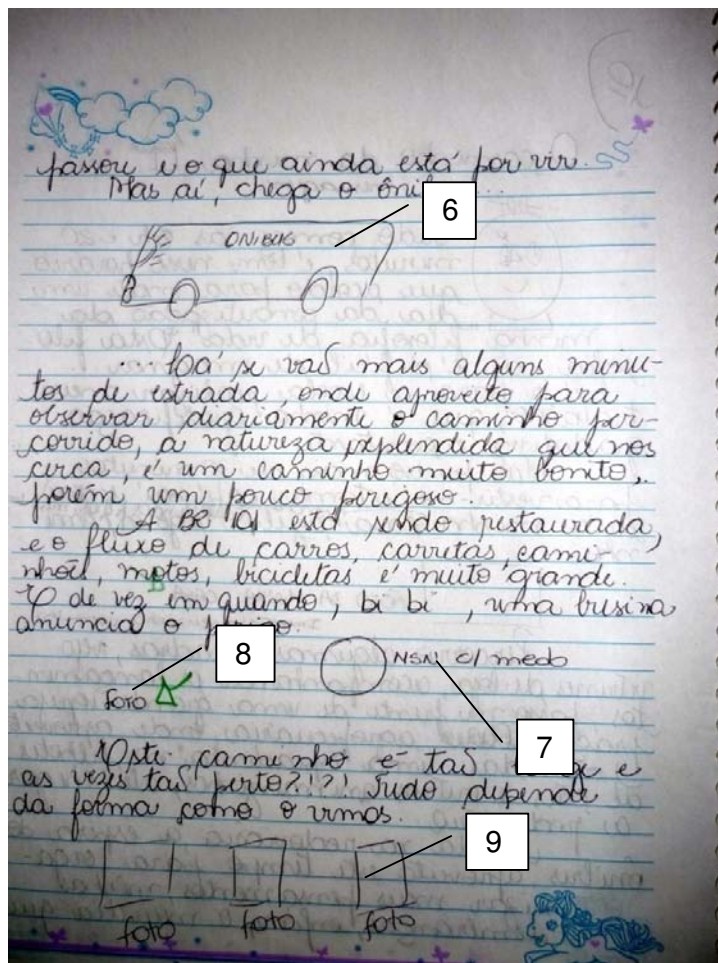 10
passou e o que ainda está por vir.
Mas aí, chega o ôni
6
ONIBUS
... Lá se vaõ mais alguns minu-
tos de estrada, onde aproveito para
observar diariamente o caminho per-
corrido, a natureza explendida que nos
cerca, é um caminho muito bonito,
porém um pouco perigoso.
A BR 101 está sendo restaurada,
e o fluxo de carros, carretas, cami-
nhões, motos, bicicletas é muito grande.
E de vez em quando, bi bi, uma busina
anuncia o
8
NSN c/ medo
foto
7
Este caminho é taõ e
as vezes taõ perto?!?! Tudo depende
da forma como o vemos.
9
foto foto foto